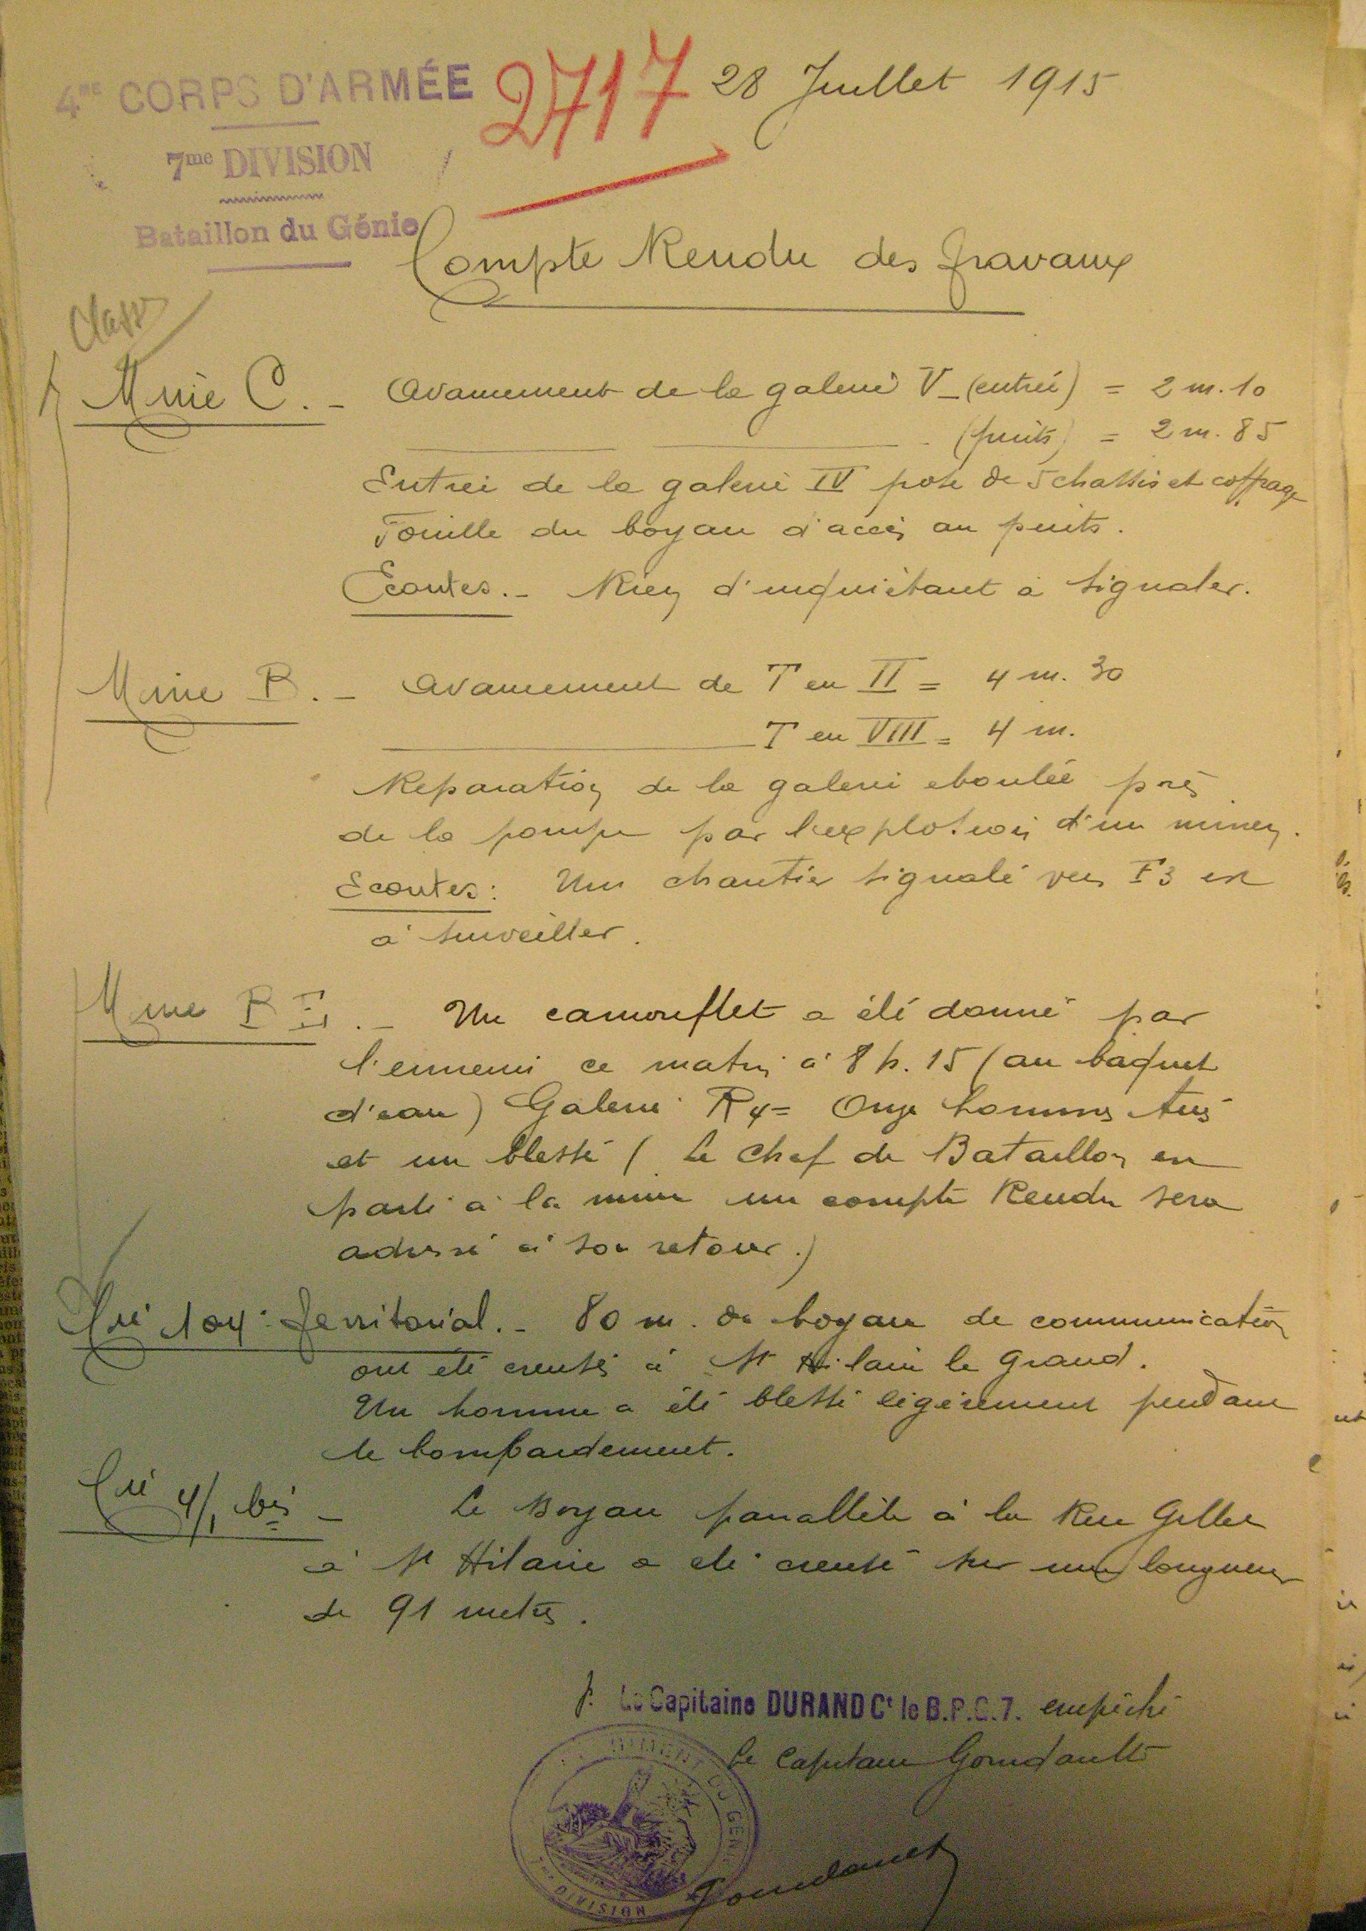 4me CORPS D'ARMÉE
7me DIVISION
Bataillon du Génie
2717
28 Juillet 1915
Compte Rendu des Travaux
Classer
Mine C. - Avancement de la galerie V - (entrée) = 2 m. 10
(puits) = 2 m. 85
Entrée de la galerie IV pose de 5 chassis et coffrage
Fouille du boyau d'accès au puits.
Ecoutes. - Rien d'inquiètant à signaler.
Mine B. - Avancement de T en II = 4 m. 30
T en VIII = 4 m.
Reparation de la galerie eboulée près
de la pompe par l'explosion d'un minen.
Ecoutes: Un chantier signalé vers F3 est
à surveiller.
Mine B. - Un camouflet a été donné par
l'ennemi ce matin à 8 h. 15 (au baquet
d'eau) Galerie R4 = Onze hommes tués
et un blessé (Le Chef de Bataillon est
parti à la mine un compte Rendu sera
adressé à son retour.)
Cie 104e Territorial. - 80 m. de boyau de communication
ont été creusés à St Hilaire le Grand.
Un homme a été blessé légèrement pendant
le bombardement.
Cie 4/1 bis - Le Boyau parallèle à la Rue
à St Hilaire a été creusé sur une longueur
de 91 metres.
p. Le Capitaine DURAND Ct le B.P.G.7. empêché
Le Capitaine Goudault
RÉGIMENT DU GÉNIE
7me DIVISION
Goudault